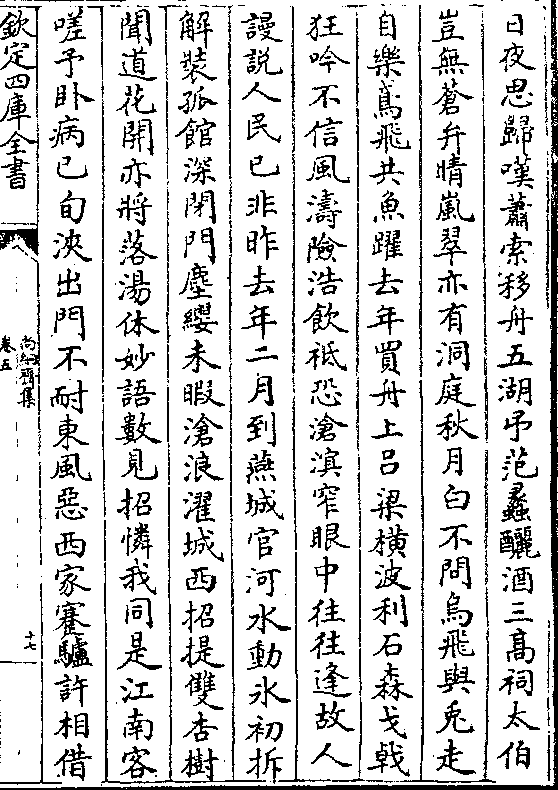 日夜思歸嘆蕭索移舟五湖弔范蠡釃酒三高祠太伯
豈無蒼弁晴嵐翠亦有洞庭秋月白不問烏飛與兎走
自樂鳶飛共魚躍去年買舟上呂梁橫波利石森戈戟
狂吟不信風濤險浩飲祗恐滄溟窄眼中往往逢故人
謾説人民已非昨去年二月到燕城官河水動氷初拆
解裝孤館深閉門塵纓未暇滄浪濯城西招提雙杏樹
聞道花開亦將落湯休妙語數見招憐我同是江南客
嗟予卧病已旬浹出門不耐東風惡西家蹇驢許相借
欽定四庫全書
尚絅齋集
卷五
十七